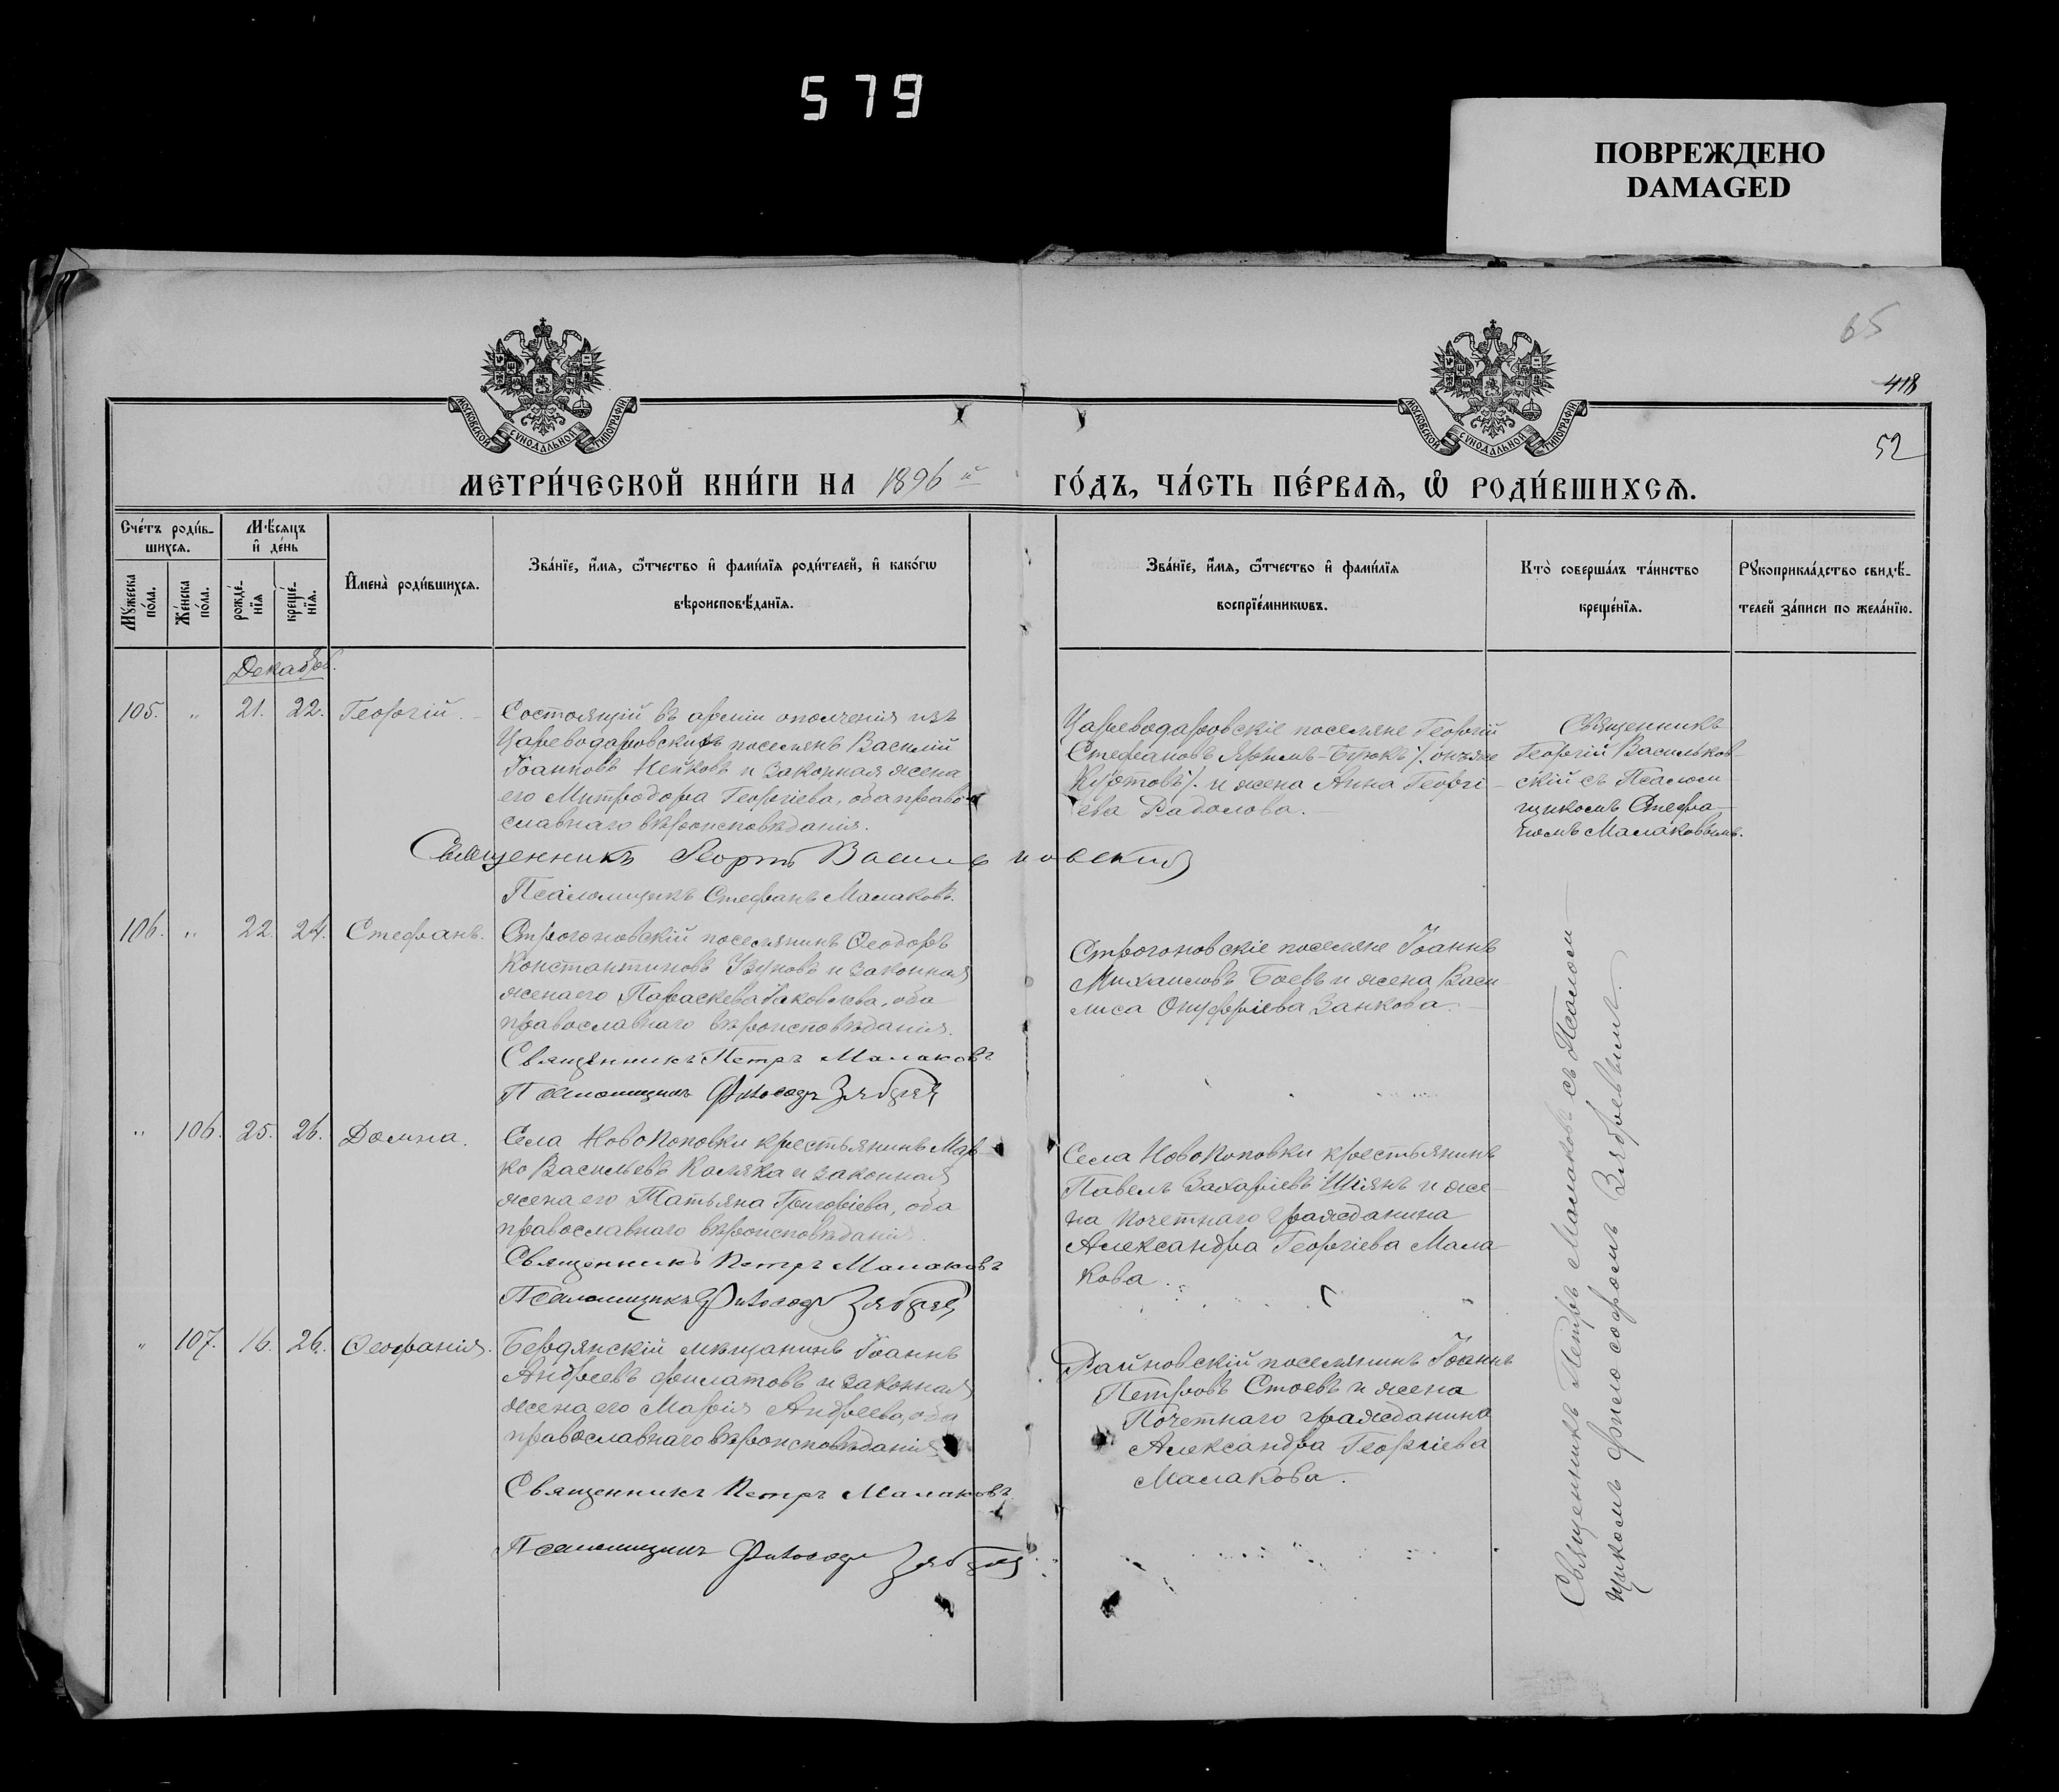 579
ПОВРЕЖДЕНО
DAMAGED
65
418
52
МОСКОВСКОЙ СУНОДАЛЬНОЙ ТИПОГРАФИИ
МОСКОВСКОЙ СУНОДАЛЬНОЙ ТИПОГРАФИИ
МЕТРИ́ЧЕСКОЙ КНИ́ГИ НА 1896 й
ГО́ДЪ, ЧА́СТЬ ПЕ́РВАѦ, Ѡ҆ РОДИ́ВШИХСѦ.
Сче́тъ роди́в-
шихсѧ.
Мꙋ́жеска по́ла.
Же́нска по́ла.
Мѣ́сѧцъ
и҆ де́нь
рожде́-
нїѧ
креще́-
нїѧ.
И҆мена̀ роди́вшихсѧ.
Зва́нїе, и҆́мѧ, ѻ҆́тчество и҆ фами́лїѧ роди́телей, и҆ како́гѡ
вѣроисповѣ́данїѧ.
Зва́нїе, и҆́мѧ, ѻ҆́тчество и҆ фами́лїѧ
воспрїе́мникѡвъ.
Кто̀ соверша́лъ та́инство
креще́нїѧ.
Рꙋкоприкла́дство свидѣ́-
телей за́писи по жела́нїю.
Декабрь.
105. " 21. 22. Георгій.
Состоящій въ арміи ополченія изъ
Цареводаровскихъ поселянъ Василій
Іоанновъ Нейковъ и законная жена
его Митродора Георгіева, оба право-
славнаго вѣроисповѣданія.
Цареводаровскіе поселяне Георгій
Стефановъ Яримъ-Бузюкъ /: онъ же
Куртовъ :/ и жена Анна Георгі-
ева Радолова.
Священникъ
Георгій Васильков-
скій съ Псалом-
щикомъ Стефа-
номъ Малаковымъ.
Священникъ Георгій Васильковскій
Псаломщикъ Стефанъ Малаковъ.
106. " 22. 24. Стефанъ.
Строгоновскій поселянинъ Ѳеодоръ
Константиновъ Узуновъ и законная
жена его Параскева Іаковлева, оба
православнаго вѣроисповѣданія.
Священникъ Петръ Малаковъ
Псаломщикъ Философъ Зябревъ
Строгоновскіе поселяне Іоаннъ
Михаиловъ Боевъ и жена Васи-
лиса Онуфріева Занкова.
" 106. 25. 26. Домна.
Села НовоПоповки крестьянинъ Мар-
ко Васильевъ Каляка и законная
жена его Татьяна Григоріева, оба
православнаго вѣроисповѣданія.
Священникъ Петръ Малаковъ
Псаломщикъ Философъ Зябревъ
Села НовоПоповки крестьянинъ
Павелъ Захаріевъ Шіянъ и же-
на почетнаго гражданина
Александра Георгіева Мала-
кова.
" 107. 16. 26. Ѳеофанія.
Бердянскій мѣщанинъ Іоаннъ
Андреевъ Филатовъ и законная
жена его Марія Андреева, оба
православнаго вѣроисповѣданія
Священникъ Петръ Малаковъ.
Псаломщикъ Философъ Зябревъ
Райновскій поселянинъ Іоаннъ
Петровъ Стоевъ и жена
Почетнаго гражданина
Александра Георгіева
Малакова.
Священникъ Петръ Малаковъ съ Псалом-
щикомъ Философомъ Зябревымъ.